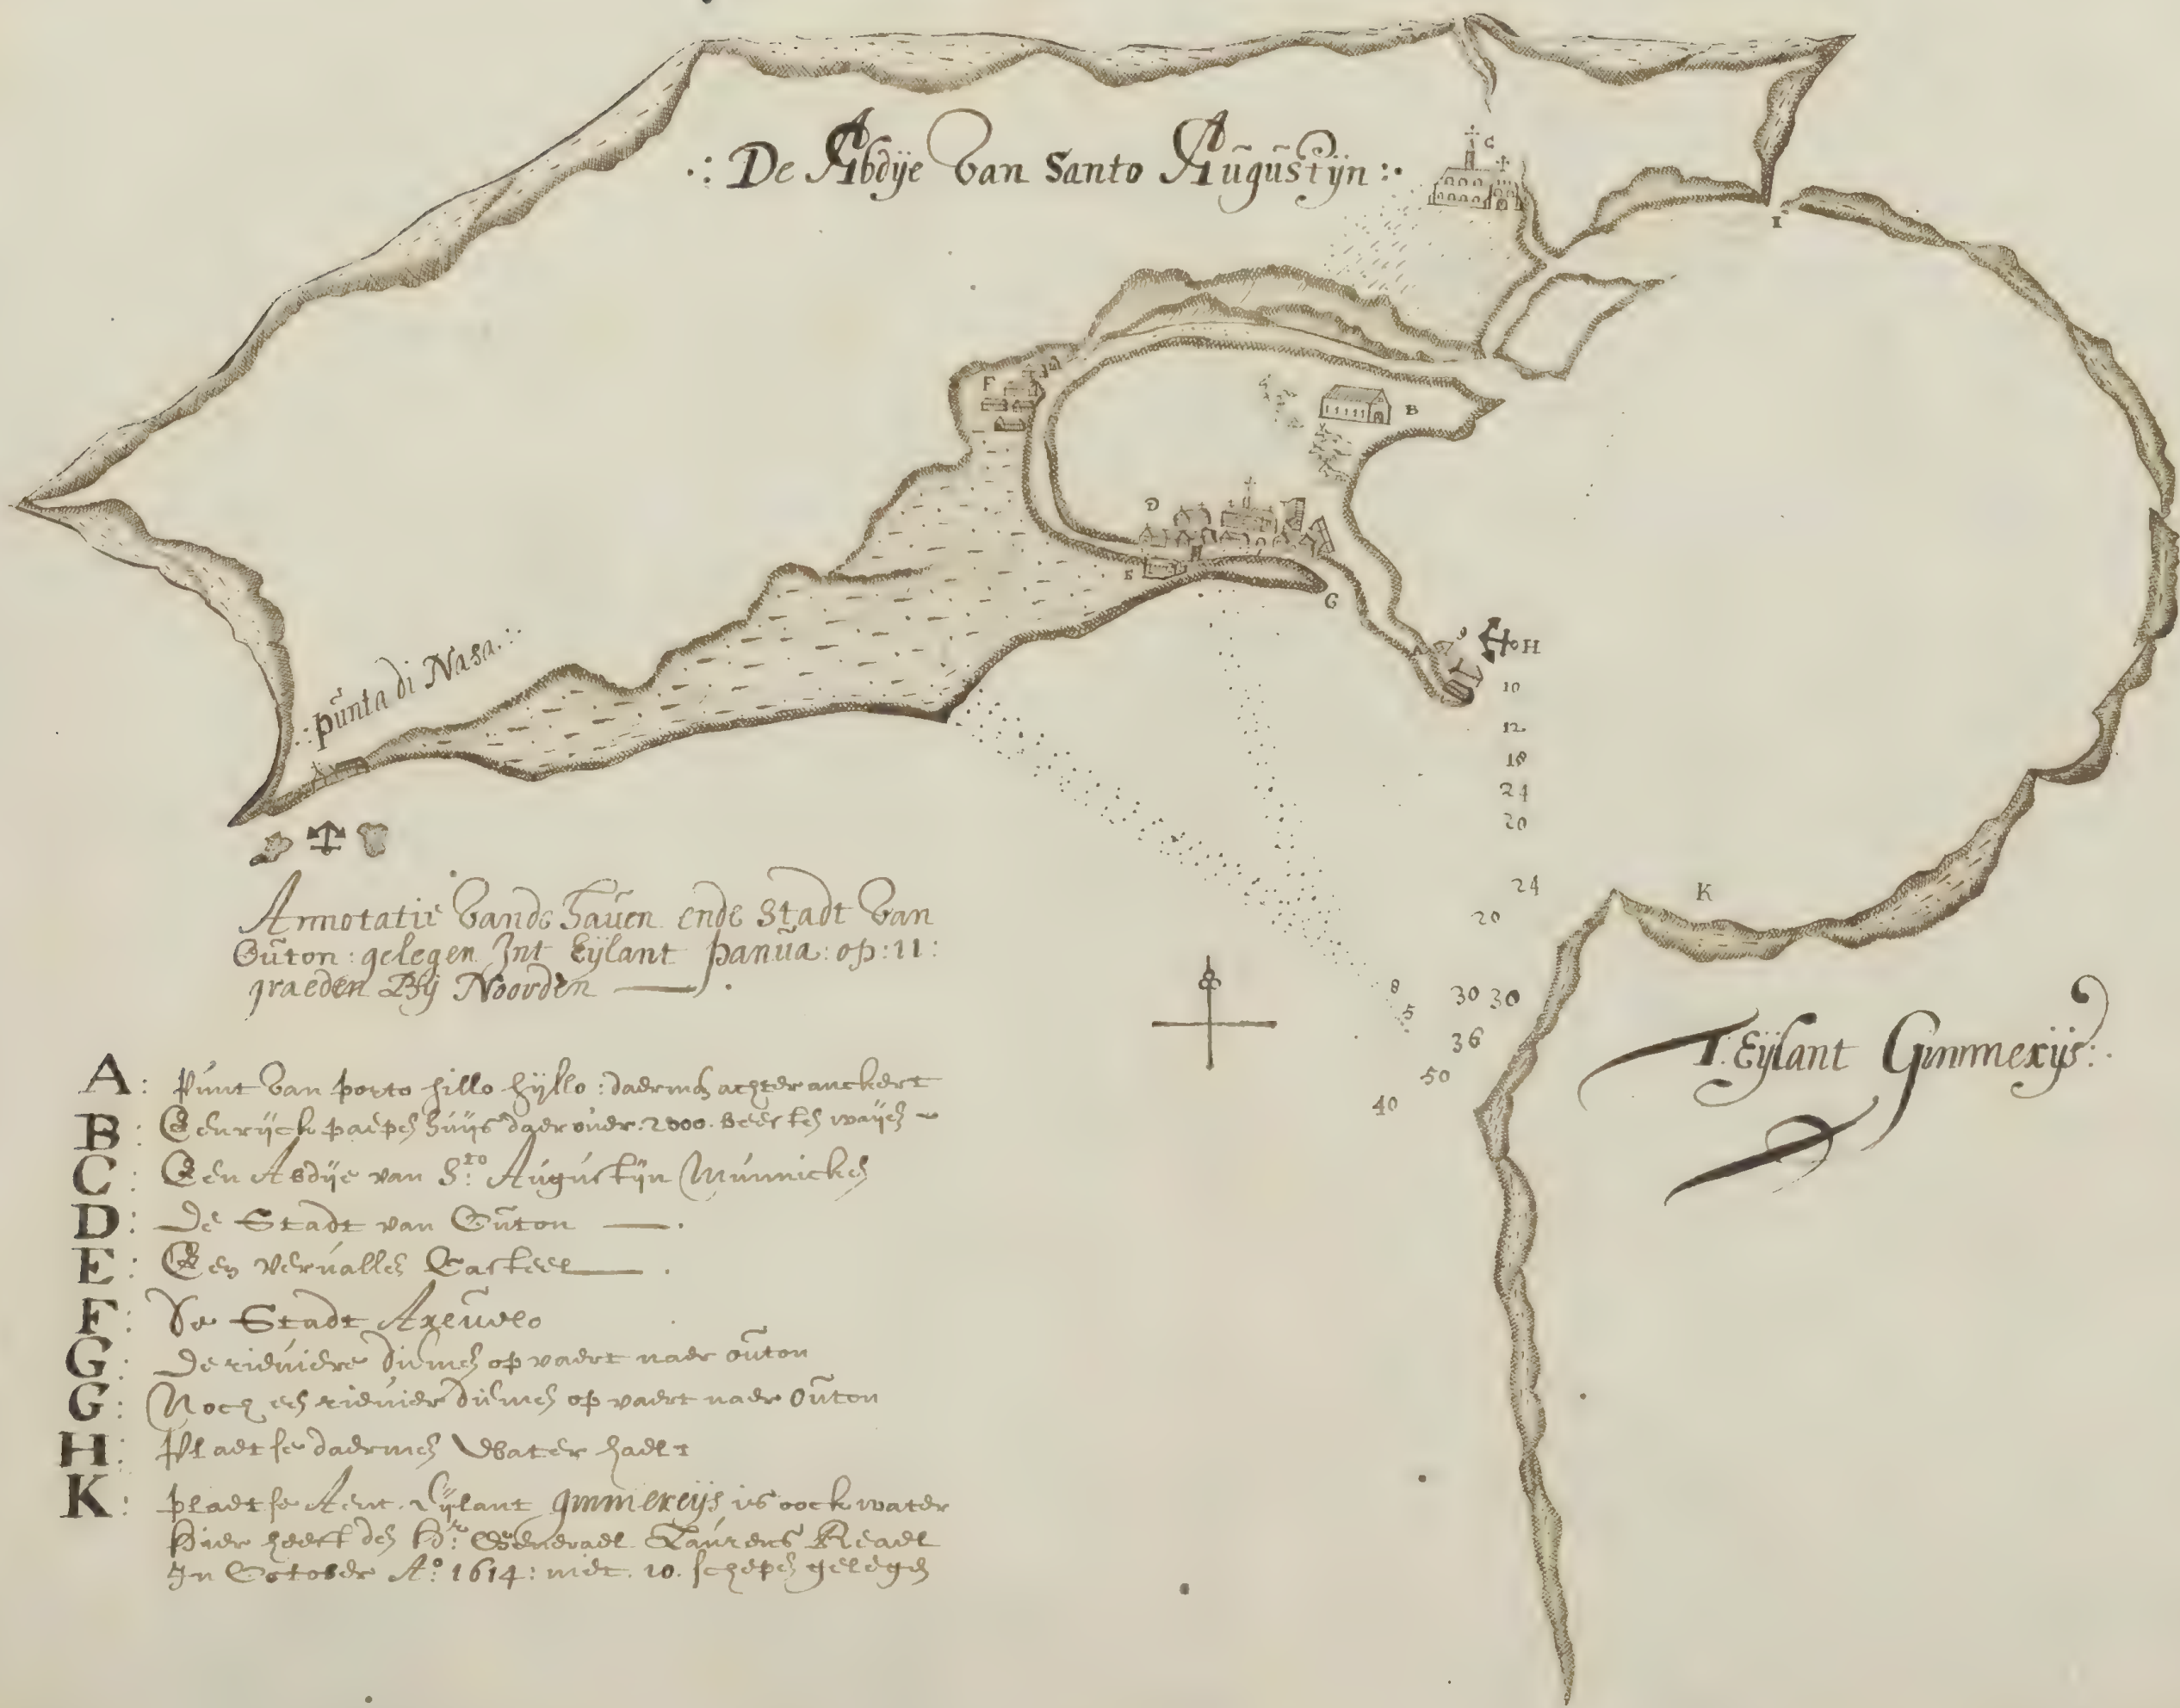 .: De Abdÿe Van Santo Augustijn :.
C
I
F
B
D
E
G
H
A
10
12
18
24
20
24
20
8
5
30 30
36
50
40
K
.: punta di Nasa .:
Annotatie Vande haven ende Stadt Van
Outon : gelegen Int Eÿlant panua : op : 11 :
graeden Bij Noorden
T. Eÿlant Gimmerijs :.
A : Punt Van porto hillo hÿllo : daermen achter anckert
B : Een rijck papen huijs daer over . 2000 . beesten waijen
C : Een Abdÿe van S.to Augustijn Munnicken
D : De Stadt van Outon
E : Een vervallen Casteel
F : De Stadt Arevolo
G : De rieviere diemen op vaert naer outon
G : Noch een rievier diemen op vaert naer outon
H : Plaetse daermen Water haelt
K : plaetse Aent. Eijlant gimmereijs is oock water
Hier heeft den Hr. Generael Laurens Reael
In October Ao. 1614 : met . 10 . schepen gelegen